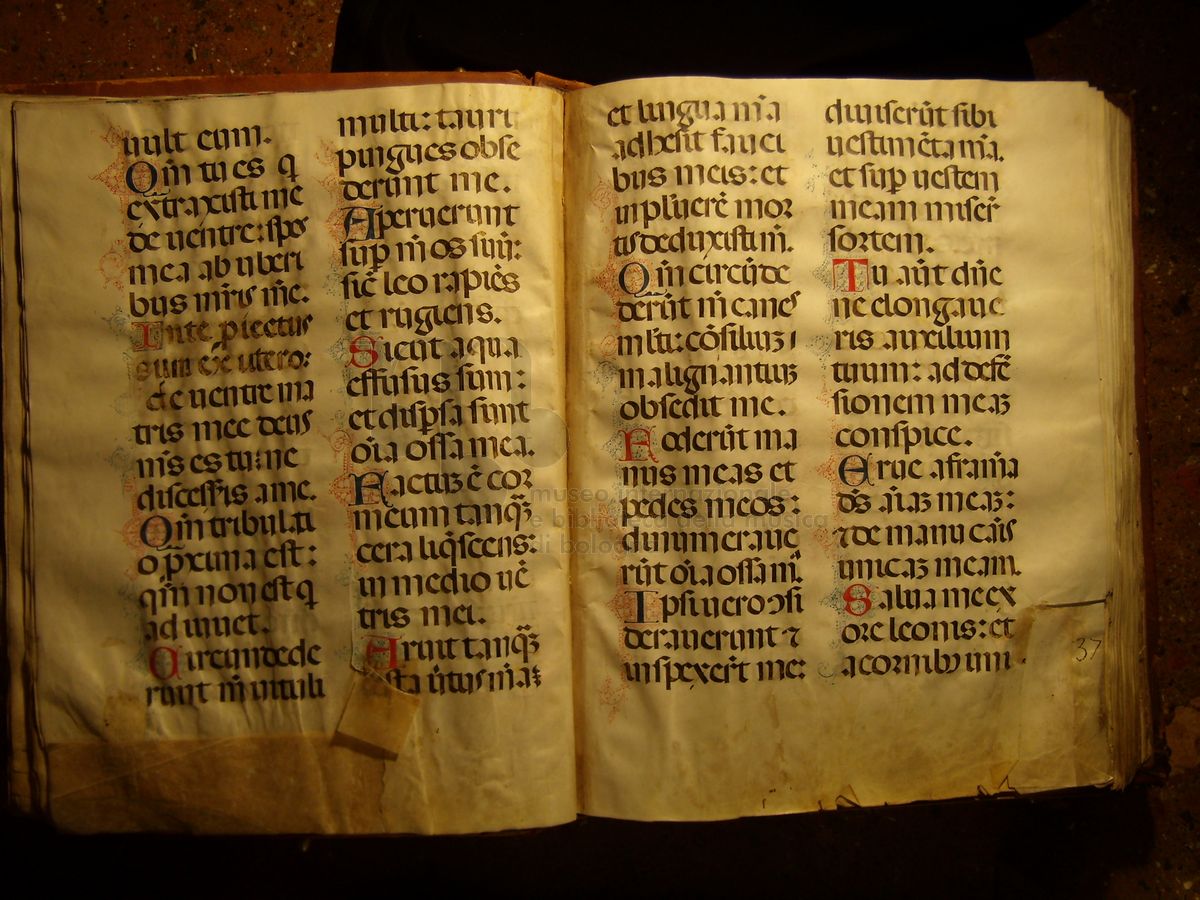 uult eum.
Qm̄ tu es q
extraxisti me
de uentre: spes
mea ab uberi
bus mr̄is mē.
In te proiectus
sum ex utero:
de uentre ma
tris mee deus
ms̄ es tu: ne
discessis a me.
Qm̄ tribulati
o p̄xima est:
qm̄ non est q
adiuuet.
Circumdede
runt m̄ uituli
multi: tauri
pingues obse
derunt me.
Aperuerunt
sup̄ m̄ os suū:
sic̄ leo rapiēs
et rugiens.
Sicut aqua
effusus sum:
et disp̄sa sunt
oīa ossa mea.
Factuʒ ē cor
meum tanqʒ̄
cera liq̄scens:
in medio uē
tris mei.
Aruit tanqʒ̄
testa uirtus māʒ
et lingua mīa
adhesit fauci
bus meis: et
in puluerē mor
tis deduxisti m̄.
Qm̄ circūde
derūt m̄ canes
mlti: cōsiliuʒ
malignantiuʒ
obsedit me.
Foderūt ma
nus meas et
pedes meos:
dinumeraue
rūt oīa ossa m̄.
Ipsi uero ↄsi
derauerunt ⁊
inspexerūt me:
diuiserūt sibi
uestimēta mīa.
et sup̄ uestem
meam miser̄
sortem.
Tu aūt dn̄e
ne elongaue
ris auxilium
tuum: ad defē
sionem meaʒ
conspice.
Erue a framīa
ds̄ aīaʒ meaʒ:
⁊ de manu canis
unicaʒ meam.
Salua me ex
ore leonis: et
a cornibus uni
37
museo internazionale
e biblioteca della musica
di bologna